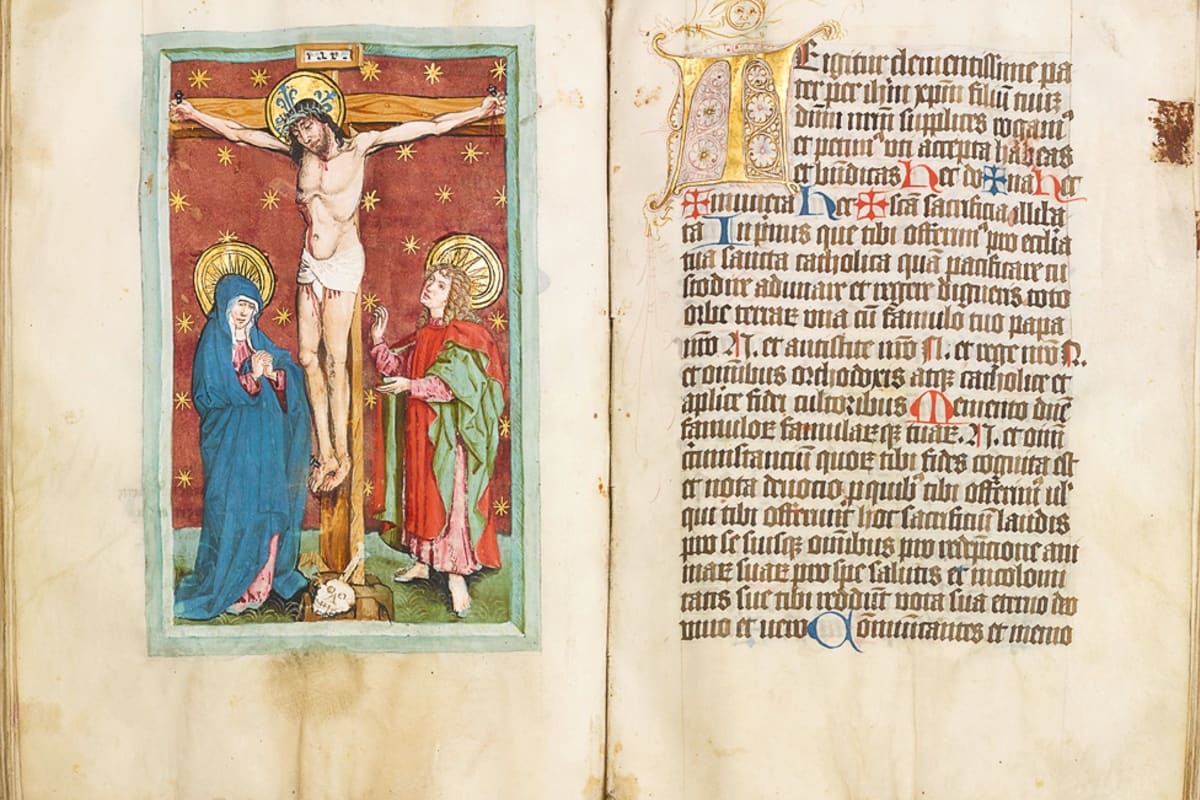 INRI
TE igitur clementissime pa
ter per ihm xpm filiu tuu
dnm nrm supplices rogam
et petim uti accepta habeas
et bndicas hec do✠na hec
✠munera hec ✠ sca sacrificia illiba
ta In pmis que tibi offerim pro ecclia
tua sancta catholica qua pacificare cu
stodire adunare et regere digneris toto
orbe terrar una cu famulo tuo papa
nro N. et antistite nro N. et rege nro N.
et omibus orthodoxis atqz catholice et
aplice fidei cultoribus Memento dne
famulor famularqz tuar. N. et omi
circumstanciu quor tibi fides cognita est
et nota devocio p quib tibi offerim ul
qui tibi offerunt hoc sacrificiu laudis
pro se suisqz omibus pro redepcione ani
mar suar pro spe salutis et incolomi
tatis sue tibi reddut vota sua eterno deo
vivo et vero Comuicantes et memo